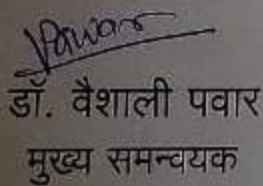 Pawar
डॉ. वैशाली पवार
मुख्य समन्वयक